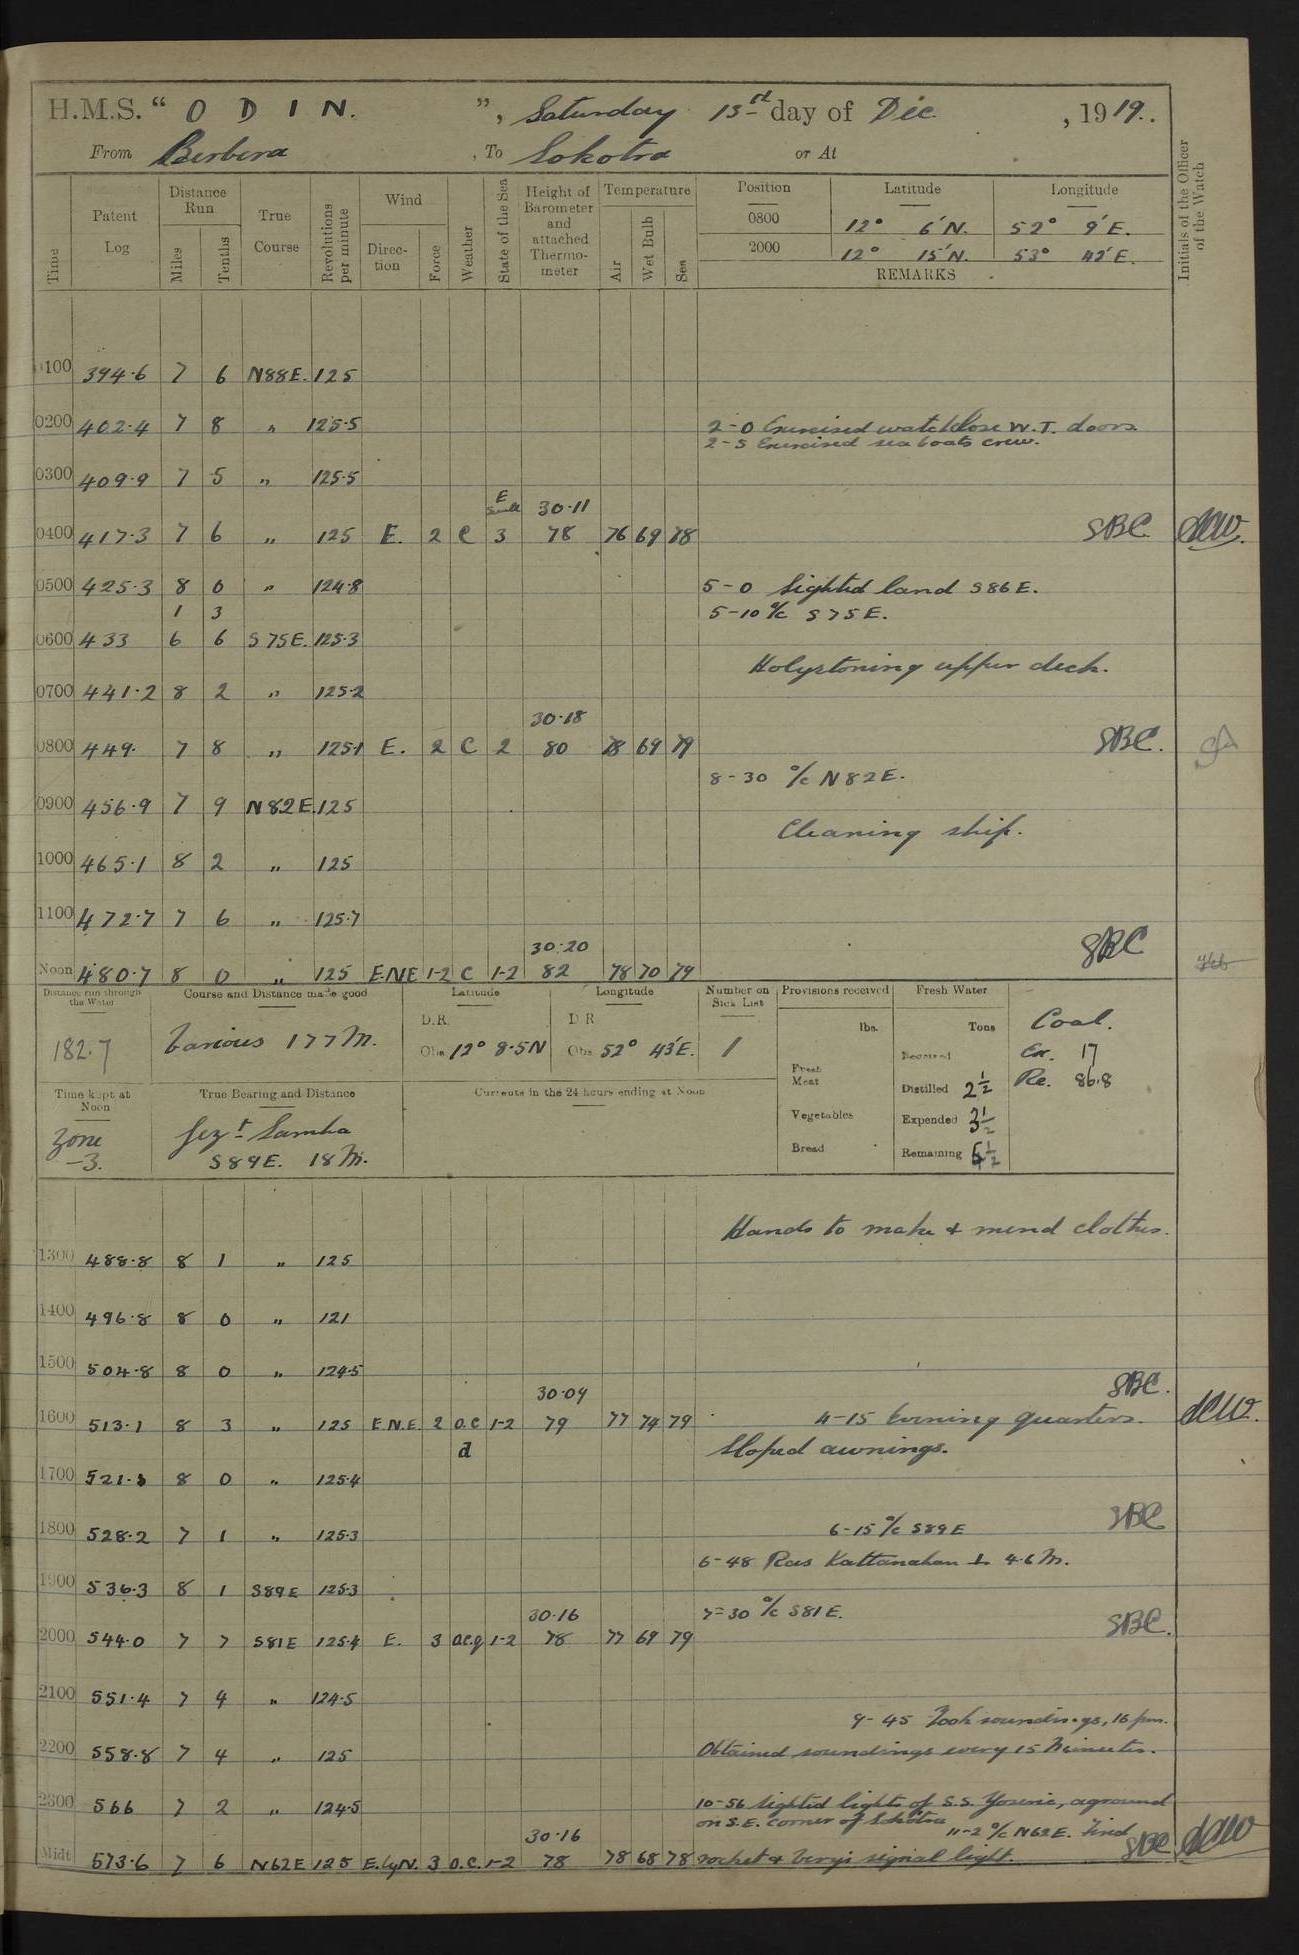 H.M.S. " O D I N. ", Saturday 13rd day of Dec. , 1919.
From Berbera , To Sokotra or At
Time
Patent Log
Distance Run
Miles
Tenths
True Course
Revolutions per minute
Wind
Direction
Force
Weather
State of the Sea
Height of Barometer and attached Thermometer
Temperature
Air
Wet Bulb
Sea
Position Latitude Longitude
0800 12° 6'N. 52° 9'E.
2000 12° 15'N. 53° 42'E.
REMARKS
Initials of the Officer of the Watch
0100 394.6 7 6 N88E. 125
0200 402.4 7 8 " 125.5 2-0 Exercised watch close W.T. doors
2-5 Exercised sea boats crew.
0300 409.9 7 5 " 125.5
E 30.11
0400 417.3 7 6 " 125 E. 2 C 3 78 76 69 78 SBC.
0500 425.3 8 0 " 124.8 5-0 Sighted land S86E.
1 3 5-10 a/c S75E.
0600 433 6 6 S75E. 125.3
Holystoning upper deck.
0700 441.2 8 2 " 125.2
30.18
0800 449. 7 8 " 125.1 E. 2 C 2 80 78 69 79 SBC.
8-30 a/c N82E.
0900 456.9 7 9 N82E. 125
Cleaning ship.
1000 465.1 8 2 " 125
1100 472.7 7 6 " 125.7
30.20 SBC
Noon 480.7 8 0 " 125 E.NE 1-2 C 1-2 82 78 70 79
Distance run through the Water
182.7
Course and Distance made good
Various 177 M.
Latitude
D.R.
Obs 12° 8.5N
Longitude
D R
Obs 52° 43'E.
Number on Sick List
1
Provisions received
lbs.
Fresh Meat
Vegetables
Bread
Fresh Water
Tons
Received
Distilled 2½
Expended 3½
Remaining
Coal.
Ex. 17
Re. 86.8
Time kept at Noon
Zone -3.
True Bearing and Distance
Jezt Samha
S89E. 18 M.
Currents in the 24 hours ending at Noon
Hands to make & mend clothes.
1300 488.8 8 1 " 125
1400 496.8 8 0 " 121
1500 504.8 8 0 " 124.5
30.09 SBC.
1600 513.1 8 3 " 125 E.N.E. 2 O.C 1-2 79 77 74 79 4-15 Evening quarters.
d Sloped awnings.
1700 521.1 8 0 " 125.4
SBC
1800 528.2 7 1 " 125.3 6-15 a/c S89E
6-48 Ras Kattanahan ⊥ 4.6 M.
1900 536.3 8 1 S89E 125.3
30.16 7-30 a/c S81E.
2000 544.0 7 7 S81E 125.4 E. 3 o.c.q 1-2 78 77 69 79 SBC.
2100 551.4 7 4 " 124.5
9-45 Took soundings, 16 fm.
2200 558.8 7 4 " 125 Obtained soundings every 15 Minutes.
2300 566 7 2 " 124.5 10-56 Sighted lights of S.S. Yoseric, aground
on S.E. corner of Sokotra
30.16 11-2 a/c N62E. Fired
Midt 573.6 7 6 N62E 125 E.byN. 3 O.C. 1-2 78 78 68 78 rocket & Very's signal light. SBC